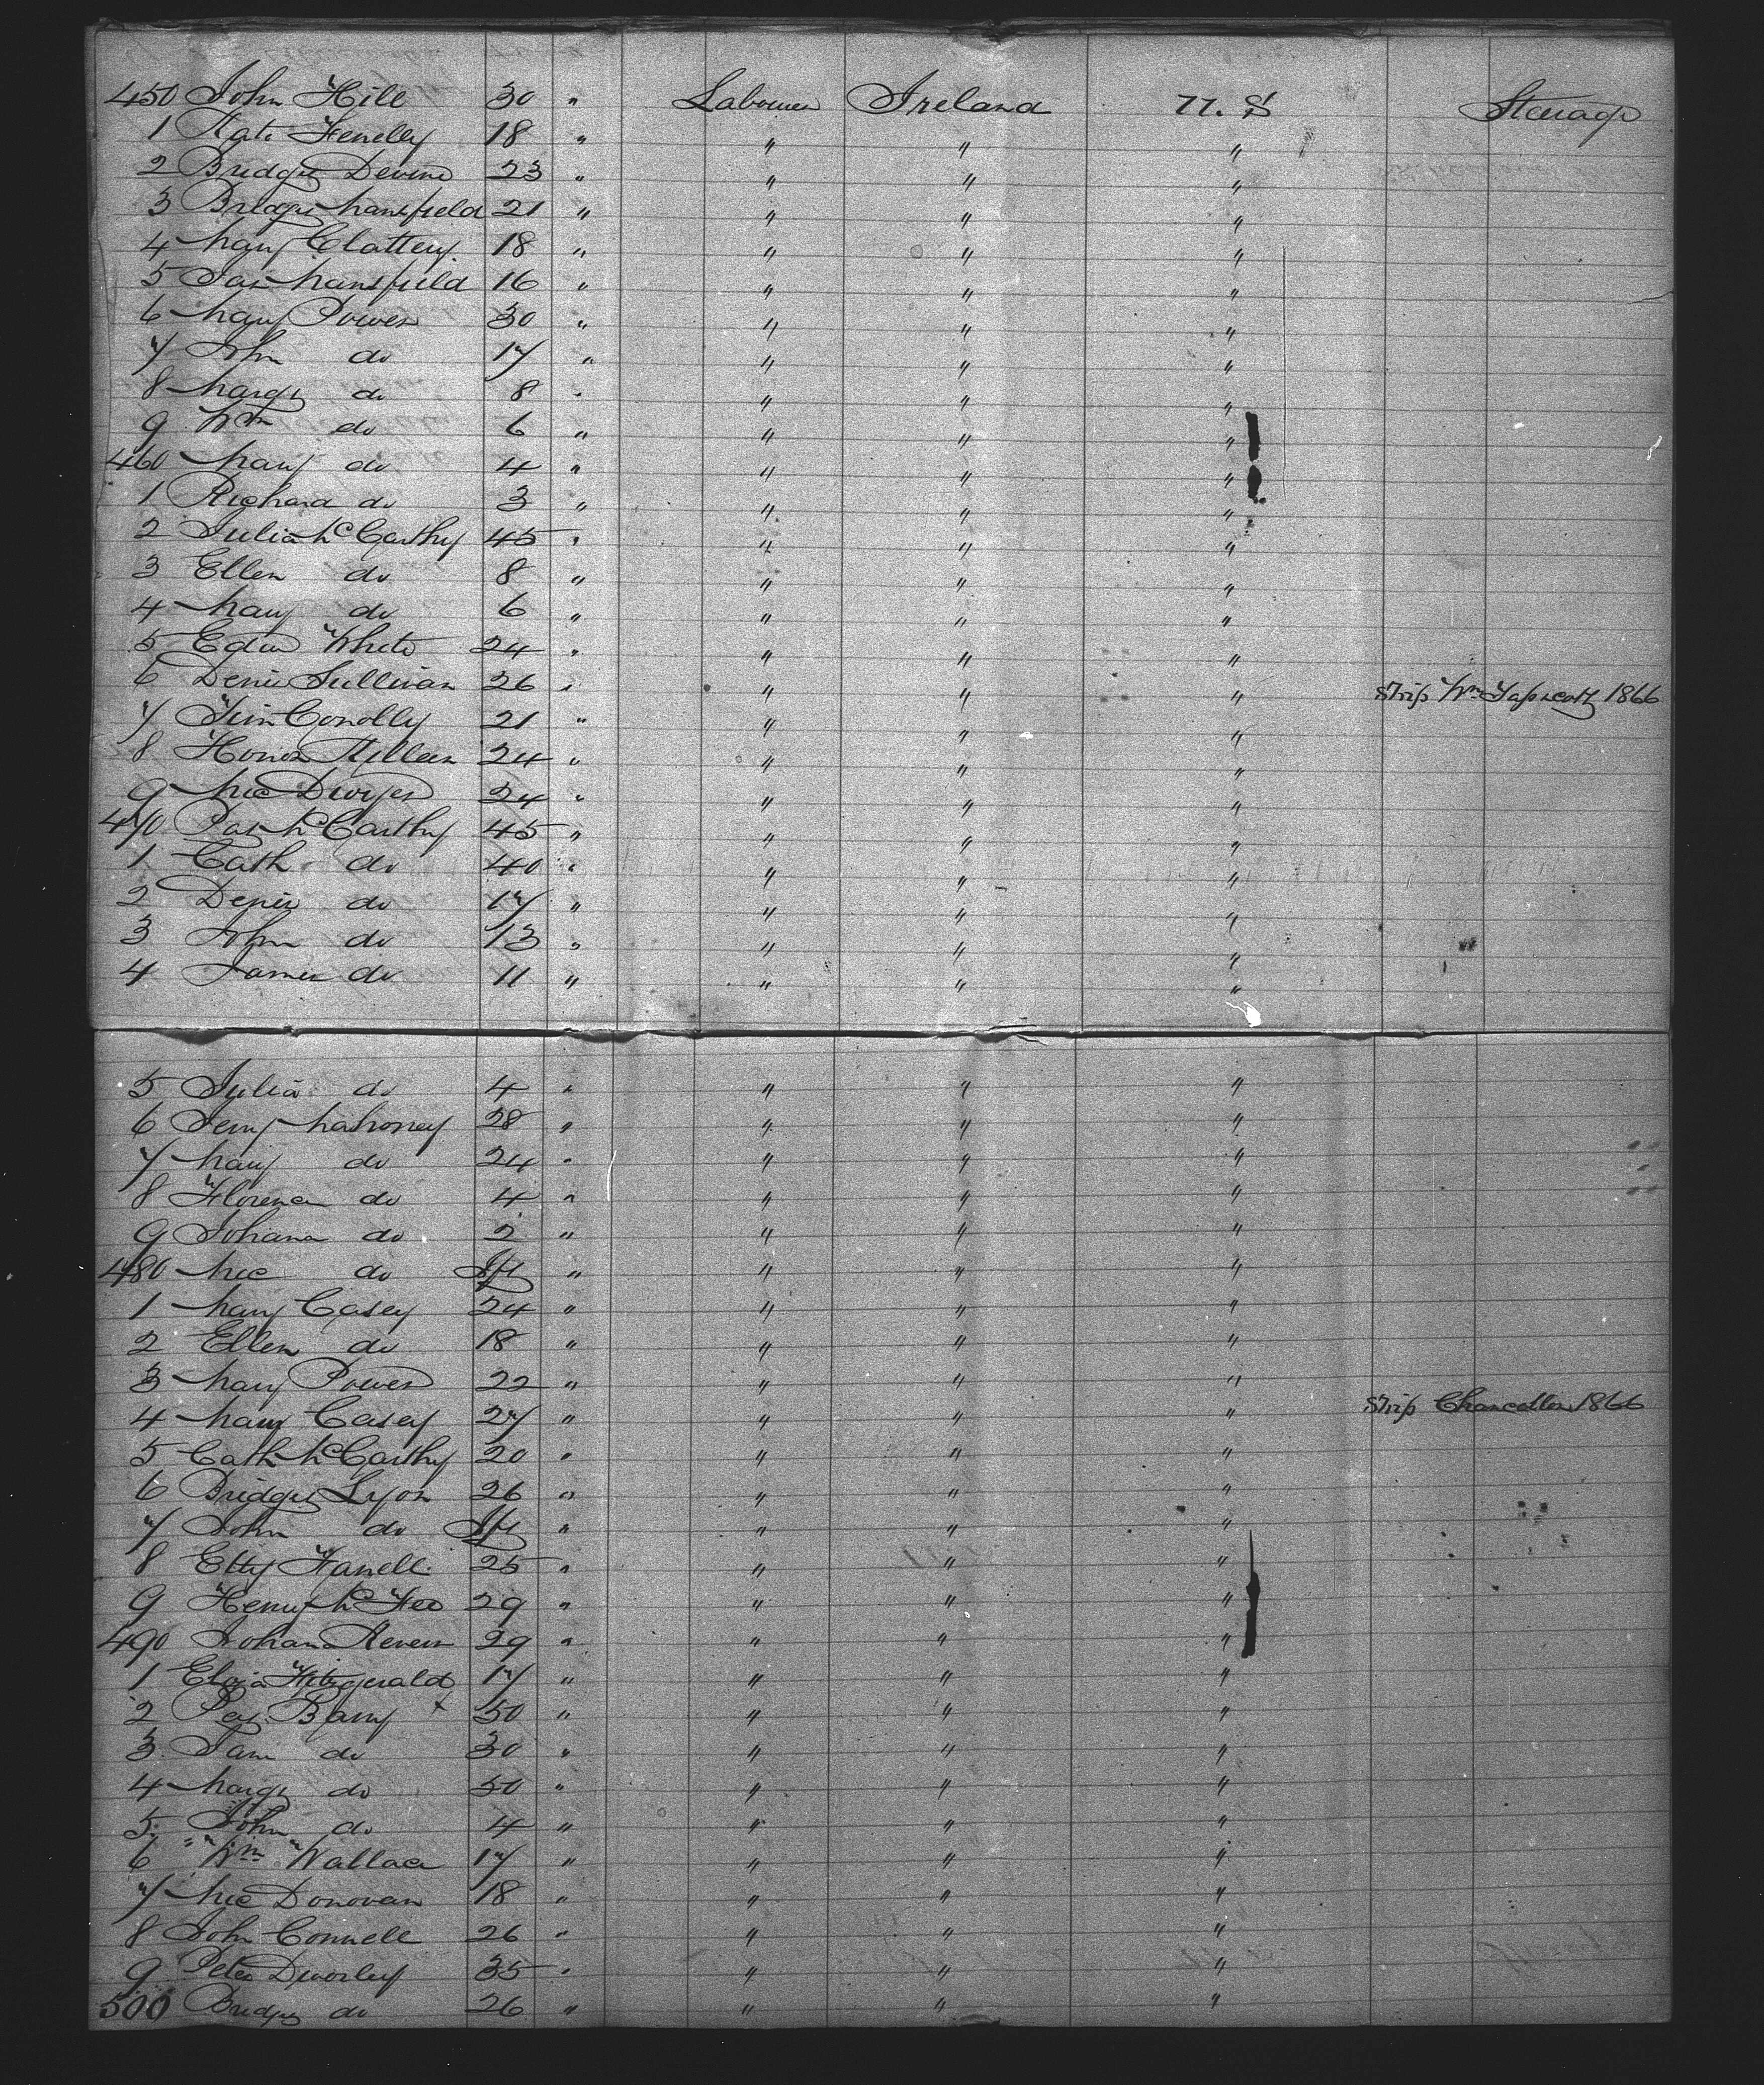 450 John Hill 30 " Labourer Ireland U. S Steerage
1 Kate Fenelly 18 " " " "
2 Bridget Devine 23 " " " "
3 Bridget Mansfield 21 " " " "
4 Mary Clattery 18 " " " "
5 Jas Mansfield 16 " " " "
6 Mary Power 30 " " " "
7 John do 17 " " " "
8 Margt do 8 " " " "
9 Wm do 6 " " " "
460 Mary do 4 " " " "
1 Richard do 3 " " " "
2 Julia McCarthy 45 " " " "
3 Ellen do 8 " " " "
4 Mary do 6 " " " "
5 Edwd White 24 " " " "
6 Denis Sullivan 26 " " " " Ship Wm Tapscott 1866
7 Tim Conolly 21 " " " "
8 Honor Killeen 24 " " " "
9 Mic Dwyer 24 " " " "
470 Pat McCarthy 45 " " " "
1 Cath do 40 " " " "
2 Denis do 17 " " " "
3 John do 13 " " " "
4 James do 11 " " " "
5 Julia do 4 " " " "
6 Jerry Mahoney 28 " " " "
7 Mary do 24 " " " "
8 Florence do 4 " " " "
9 Johana do 2 " " " "
480 Mic do Inft " " " "
1 Mary Casey 24 " " " "
2 Ellen do 18 " " " "
3 Mary Power 22 " " " "
4 Mary Casey 27 " " " " Ship Chancellor 1866
5 Cath McCarthy 20 " " " "
6 Bridget Lyon 26 " " " "
7 John do Inft " " " "
8 Etty Farrell 25 " " " "
9 Henry McFee 29 " " " "
490 Johana 29 " " " "
1 Eliza Fitzgerald 17 " " " "
2 Barry x 50 " " " "
3 do 30 " " " "
4 Margt do 50 " " " "
5 John do 4 " " " "
6 " Wm Wallace 17 " " " "
7 Mic Donovan 18 " " " "
8 John Connell 26 " " " "
9 Peter 35 " " " "
500 Bridget do 26 " " " "